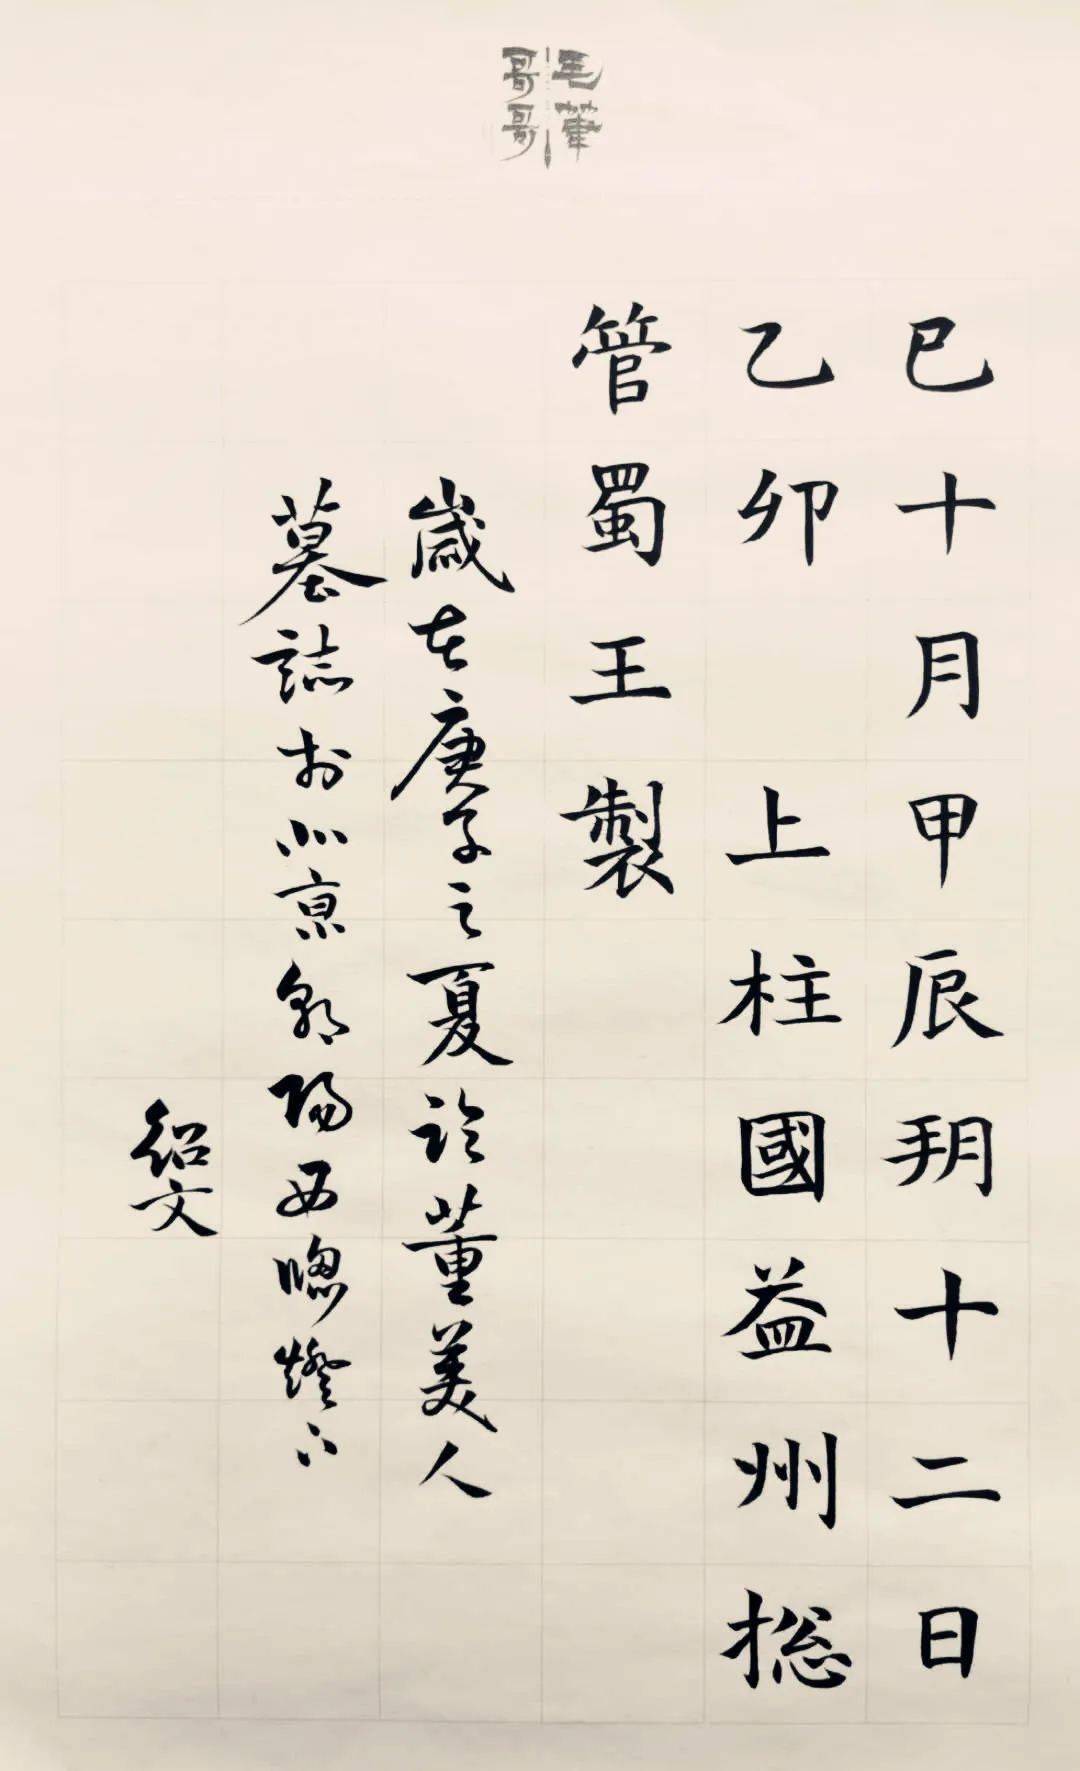 毛筆
哥哥
巳十月甲辰朔十二日
乙卯 上柱國益州捴
管蜀王製
歲在庚子之夏臨董美人
墓誌於北京朝陽西窗燈下
紹文